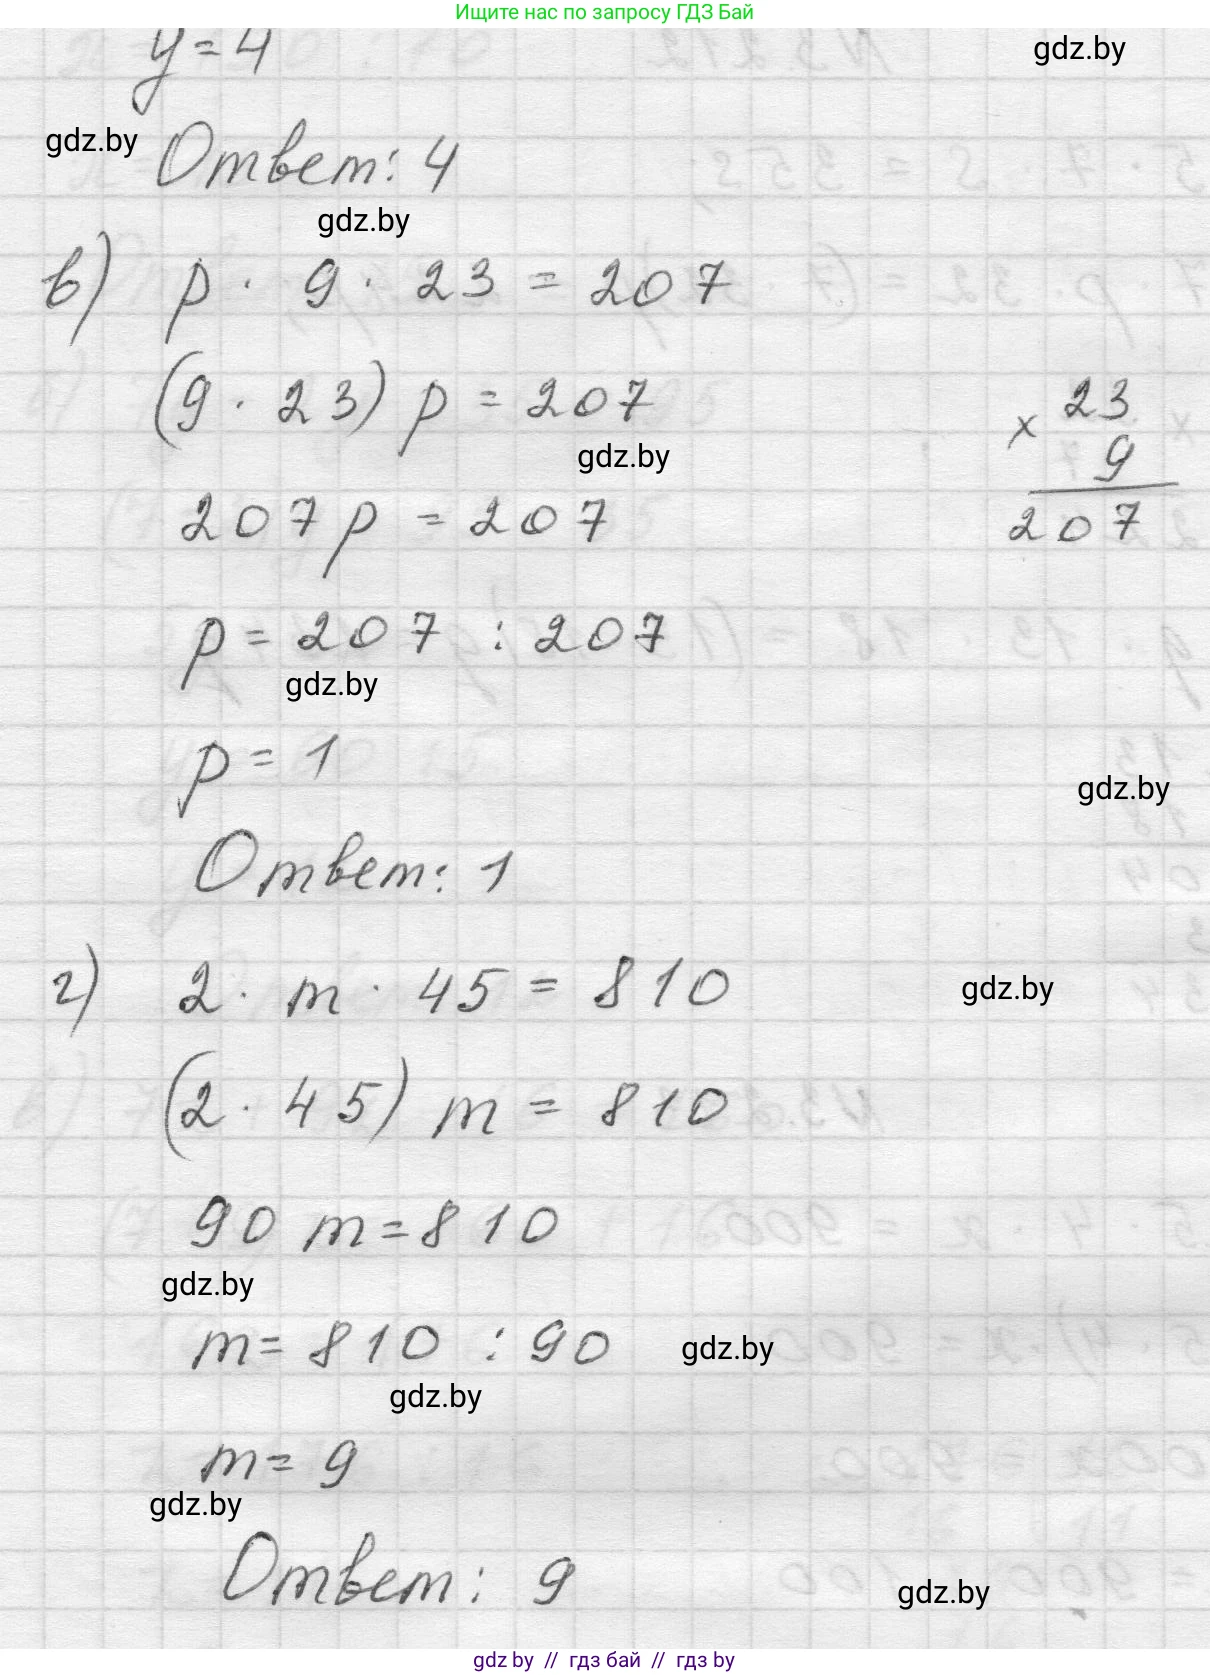 Ищите нас по запросу ГДЗ Бай
y = 4
gdz.by
gdz.by
Ответ: 4
gdz.by
в) p · 9 · 23 = 207
(9 · 23) p = 207
× 23
9
207
gdz.by
207 p = 207
p = 207 : 207
gdz.by
p = 1
gdz.by
Ответ: 1
г) 2 · m · 45 = 810
gdz.by
(2 · 45) m = 810
90 m = 810
gdz.by
m = 810 : 90
gdz.by
gdz.by
m = 9
gdz.by
Ответ: 9
gdz.by
gdz by // гдз бай // гдз by